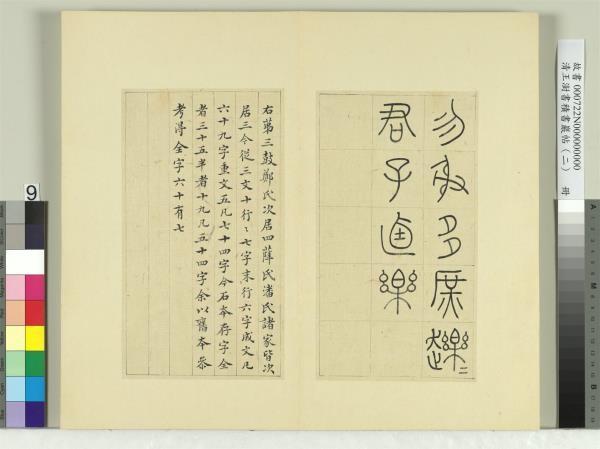 勿射多庶
君子卣樂
右第三鼓鄭氏次居四薛氏潘氏諸家皆次
居三今從三文十行〻七字末行六字成文凡
六十九字重文五凡七十四字今石本存字全
者三十五半者十九凡五十四字余以舊本叅
考得全字六十有七
故書 000722N000000000
清王澍書積書巖帖（二） 冊
9
A
B